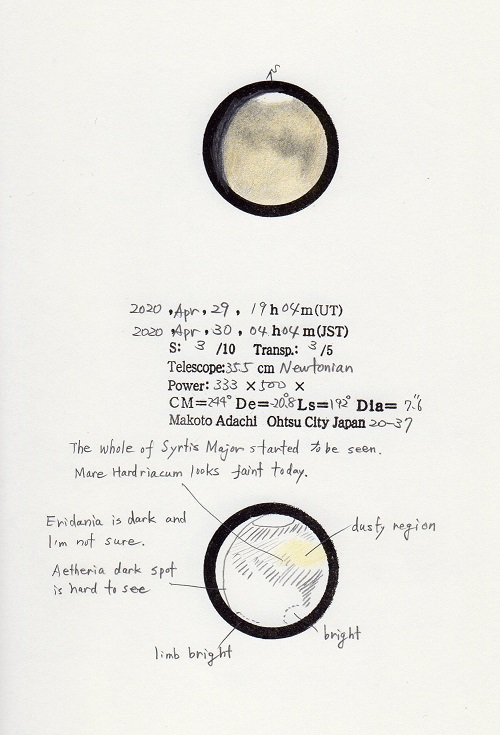 S
2020, Apr, 29, 19h04m(UT)
2020, Apr, 30, 04h04m(JST)
S: 3 /10 Transp.: 3 /5
Telescope:35.5 cm Newtonian
Power: 333 × 500 ×
CM=244° De=-20.8° Ls=192° Dia= 7.″6
Makoto Adachi Ohtsu City Japan 20-37
The whole of Syrtis Major started to be seen.
Mare Hardriacum looks faint today.
Eridania is dark and
I'm not sure.
dusty region
Aetheria dark spot
is hard to see
bright
limb bright